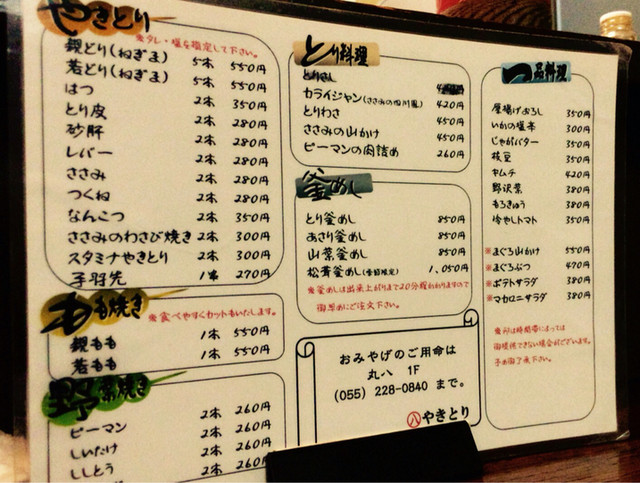 やきとり
※タレ・塩を指定して下さい。
親どり(ねぎま) 5本 550円
若どり(ねぎま) 5本 550円
はつ 2本 350円
とり皮 2本 280円
砂肝 2本 280円
レバー 2本 280円
ささみ 2本 280円
つくね 2本 280円
なんこつ 2本 350円
ささみのわさび焼き 2本 300円
スタミナやきとり 2本 300円
手羽先 1本 270円
もも焼き
※食べやすくカットもいたします。
親もも 1本 550円
若もも 1本 550円
野菜焼き
ピーマン 2本 260円
しいたけ 2本 260円
ししとう 2本 260円
とり料理
とりさし
カライジャン(ささみの四川風) 420円
とりわさ 450円
ささみの山かけ 450円
ピーマンの肉詰め 260円
釜めし
とり釜めし 850円
あさり釜めし 850円
山菜釜めし 850円
松茸釜めし(季節限定) 1,050円
※釜めしは出来上がりまで20分程かかりますので
御早めにご注文下さい。
おみやげのご用命は
丸八 1F
(055) 228-0840 まで。
八 やきとり
一品料理
厚揚げおろし 350円
いかの塩辛 300円
じゃがバター 350円
枝豆 350円
キムチ 420円
野沢菜 380円
もろきゅう 380円
冷やしトマト 350円
※まぐろ山かけ 550円
※まぐろぶつ 470円
※ポテトサラダ 380円
※マカロニサラダ 380円
※印は時間帯によっては
御提供できない場合がございます。
予め御了承下さい。